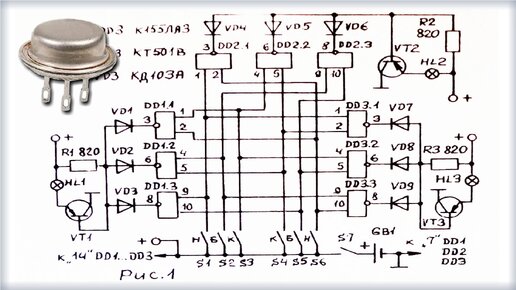 DD3 К155ЛА3 VD4 VD5 VD6 R2
VT3 КТ501В DD2.1 DD2.2 DD2.3 VT2 820
КД103А 3 6 8 HL2
1 2 4 5 9 10 +
VD1 DD1.1 DD3.1 VD7
3 1 2 1 2 3
+ R1 820 VD2 DD1.2 DD3.2 VD8 R3 820 +
6 4 5 4 5 6
HL1 VD3 DD1.3 DD3.3 VD9 HL3
8 9 10 9 10 8
VT1 VT3
+ Н Б К К Б Н S7 GB1 К "7" DD1
К "14" DD1...DD3 S1 S2 S3 S4 S5 S6 DD2
DD3
Рис.1